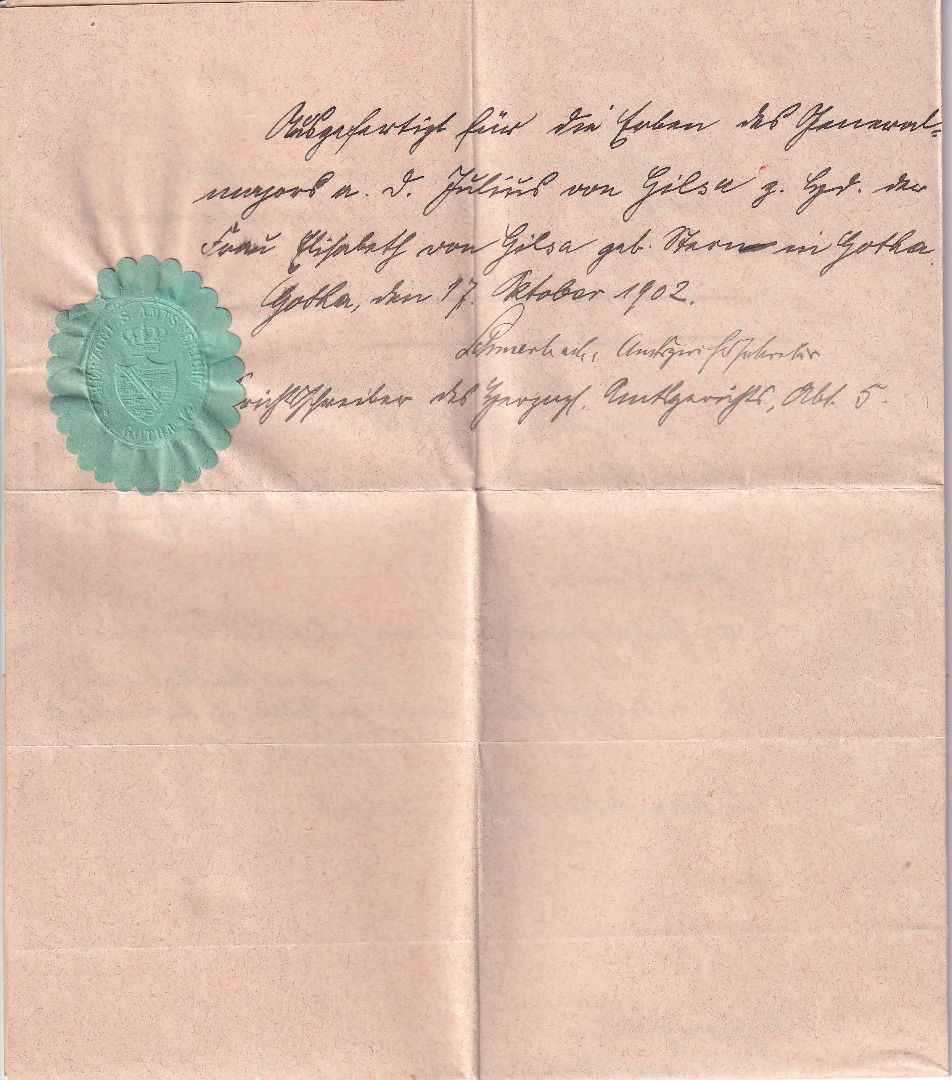 Ausgefertigt für die Erben des General-
majors a. D. Julius von Gilsa z. Hd. der
Frau Elisabeth von Gilsa geb. Stern in Gotha.
Gotha, den 17. Oktober 1902.
Amtsgerichtssekretär
richtsschreiber des Herzogl. Amtsgerichts, Abt. 5.
HERZOGL. S. AMTSGERICHT
GOTHA